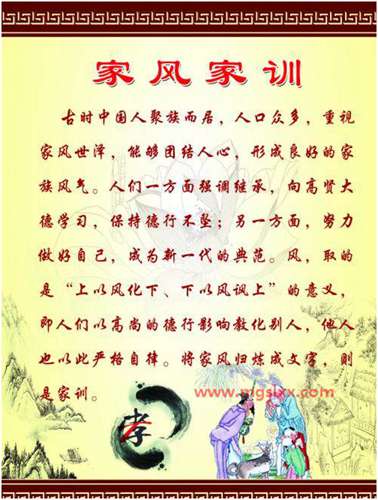 家风家训
古时中国人聚族而居，人口众多，重视
家风世泽，能够团结人心，形成良好的家
族风气。人们一方面强调继承，向高贤大
德学习，保持德行不坠；另一方面，努力
做好自己，成为新一代的典范。风，取的
是“上以风化下、下以风讽上”的意义，
即人们以高尚的德行影响教化别人，他人
也以此严格自律。将家风归炼成文字，则
是家训。
www.mgslxx.com
孝